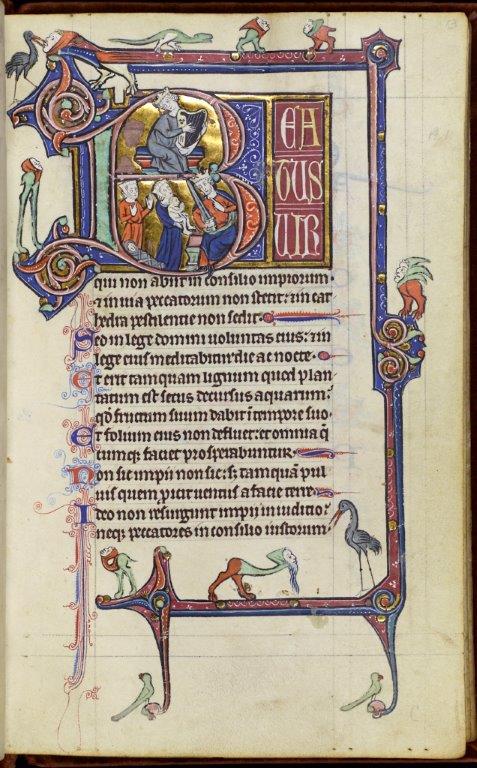 B
EA
TUS
UIR
qui non abiit in consilio impiorum
⁊ in uia peccatorum non stetit: ⁊ in cat
hedra pestilentie non sedit.
Sed in lege domini uoluntas eius: ⁊ in
lege eius meditabitur die ac nocte.
Et erit tamquam lignum quod plan
tatum est secus decursus aquarum:
qđ fructum suum dabit ī tempore suo.
Et folium eius non defluet: et omnia q̄
cumq; faciet prosperabuntur.
Non sic impii non sic: s; tamquā pul
uis quem proicit uentus a facie terre.
Ideo non resurgunt impii in iudicio:
neq; peccatores in consilio iustorum